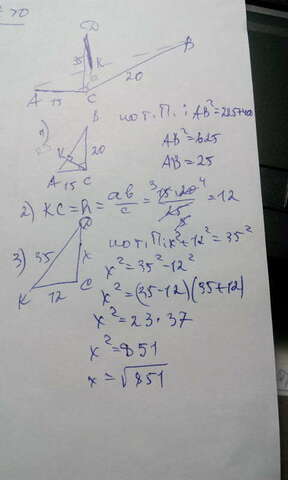 D
35
K
B
A 15 C
20
1)
B
K
20
A 15 C
по т. П.: AB² = 225+400
AB² = 625
AB = 25
2) KC = h = ab/c = 15·20/25 = 12
3)
D
35
x
K 12 C
по т. П: x²+12² = 35²
x² = 35²-12²
x² = (35-12)(35+12)
x² = 23·37
x² = 851
x = √851